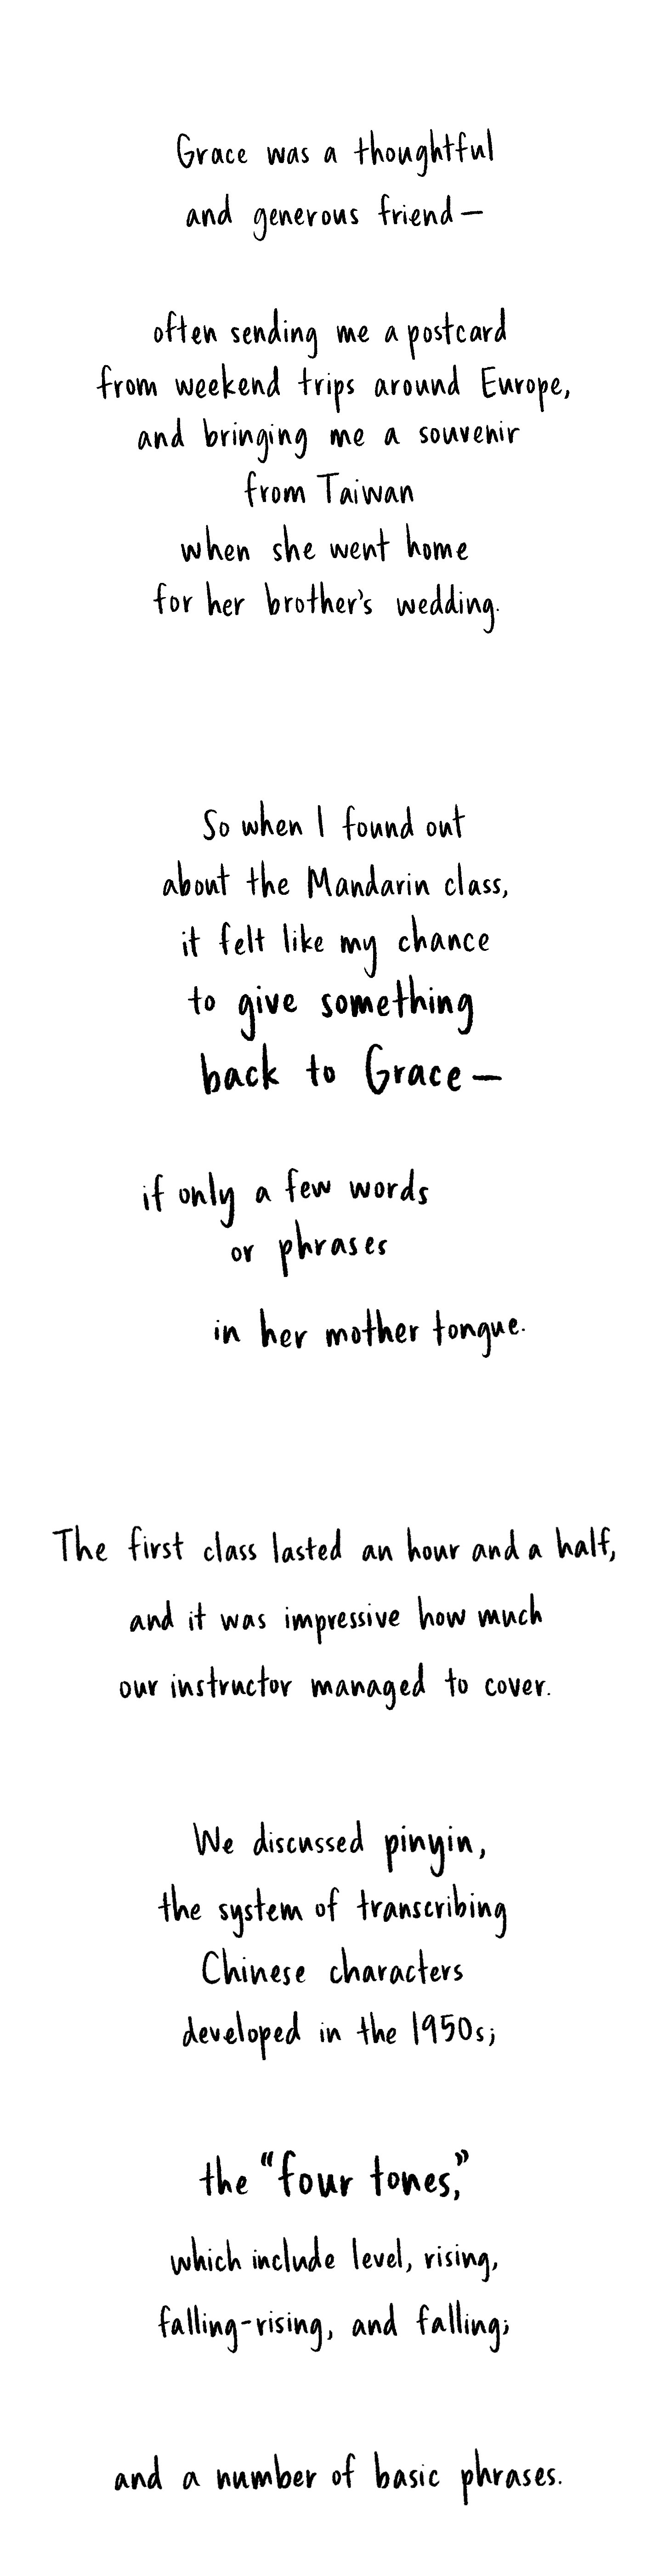 Grace was a thoughtful
and generous friend—
often sending me a postcard
from weekend trips around Europe,
and bringing me a souvenir
from Taiwan
when she went home
for her brother's wedding.
So when I found out
about the Mandarin class,
it felt like my chance
to give something
back to Grace—
if only a few words
or phrases
in her mother tongue.
The first class lasted an hour and a half,
and it was impressive how much
our instructor managed to cover.
We discussed pinyin,
the system of transcribing
Chinese characters
developed in the 1950s;
the “four tones,”
which include level, rising,
falling-rising, and falling;
and a number of basic phrases.